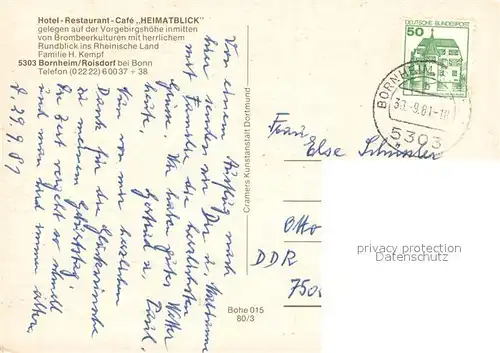 Hotel-Restaurant-Café „HEIMATBLICK"
gelegen auf der Vorgebirgshöhe inmitten
von Brombeerkulturen mit herrlichem
Rundblick ins Rheinische Land
Familie H. Kempf
5303 Bornheim/Roisdorf bei Bonn
Telefon (02222) 60037 + 38
50
DEUTSCHE BUNDESPOST
BORNHEIM
-9.81-
5303
Cramers Kunstanstalt Dortmund
Bohe 015
80/3
Frau
Else
Otto
DDR
750
privacy protection
Datenschutz
29.9.81
Von einem Ausflug nach
hier senden wir Dir u.
mit Familie die herzlichsten
Grüsse. Wir haben gutes Wetter
heute.
Nun von mir herzlichen
Dank für die Glückwünsche
zu meinem Geburtstag.
Die Zeit vergeht so schnell
und man wird immer älter.